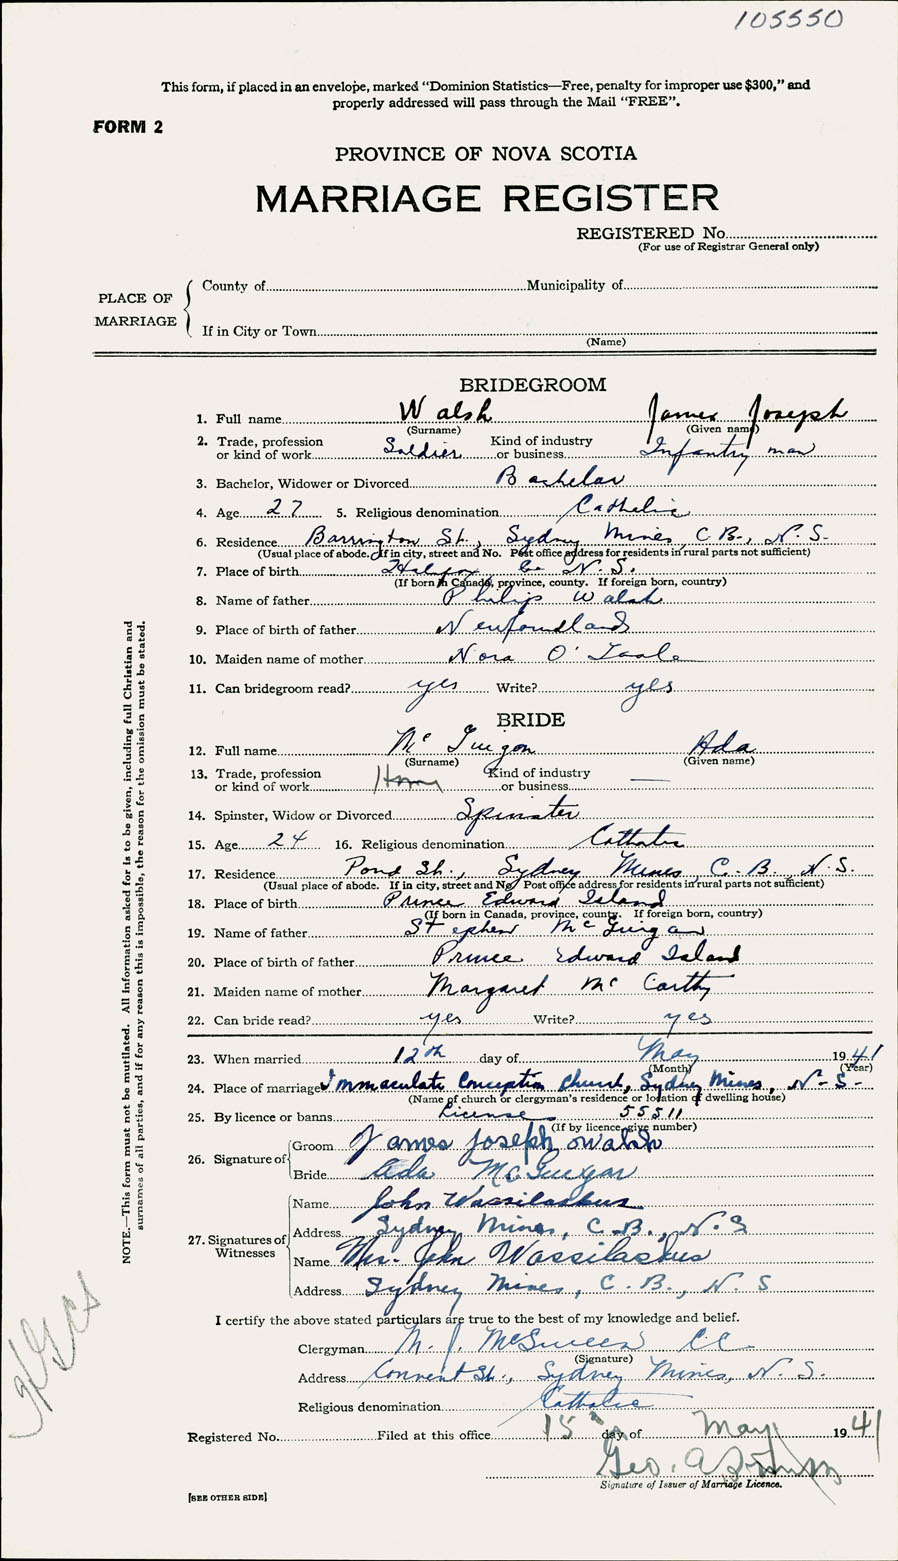 105550
This form, if placed in an envelope, marked "Dominion Statistics—Free, penalty for improper use $300," and
properly addressed will pass through the Mail "FREE".
FORM 2
PROVINCE OF NOVA SCOTIA
MARRIAGE REGISTER
REGISTERED No.
(For use of Registrar General only)
PLACE OF MARRIAGE
County of Municipality of
If in City or Town
(Name)
BRIDEGROOM
1. Full name Walsh James Joseph
(Surname) (Given name)
2. Trade, profession or kind of work Soldier Kind of industry or business Infantry man
3. Bachelor, Widower or Divorced Bachelor
4. Age 27 5. Religious denomination Catholic
6. Residence Barrington St., Sydney Mines, C.B., N.S.
(Usual place of abode. If in city, street and No. Post office address for residents in rural parts not sufficient)
7. Place of birth Halifax Co. N.S.
(If born in Canada, province, county. If foreign born, country)
8. Name of father Philip Walsh
9. Place of birth of father Newfoundland
10. Maiden name of mother Nora O'Toole
11. Can bridegroom read? yes Write? yes
BRIDE
12. Full name Mc Guigon Ada
(Surname) (Given name)
13. Trade, profession or kind of work Home Kind of industry or business —
14. Spinster, Widow or Divorced Spinster
15. Age 24 16. Religious denomination Catholic
17. Residence Pond St., Sydney Mines, C.B., N.S.
(Usual place of abode. If in city, street and No. Post office address for residents in rural parts not sufficient)
18. Place of birth Prince Edward Island
(If born in Canada, province, county. If foreign born, country)
19. Name of father Stephen McGuigan
20. Place of birth of father Prince Edward Island
21. Maiden name of mother Margaret McCarthy
22. Can bride read? yes Write? yes
23. When married 12th day of May 1941
(Month) (Year)
24. Place of marriage Immaculate Conception Church, Sydney Mines, N-S-
(Name of church or clergyman's residence or location of dwelling house)
25. By licence or banns License 55511
(If by licence give number)
26. Signature of Groom James Joseph Walsh
Bride Ada McGuigan
27. Signatures of Witnesses
Name John Wassilaskus
Address Sydney Mines, C.B., N.S
Name Mrs. John Wassilaskus
Address Sydney Mines, C.B., N.S
I certify the above stated particulars are true to the best of my knowledge and belief.
Clergyman M. J. McSween CC
(Signature)
Address Convent St., Sydney Mines, N.S.
Religious denomination Catholic
Registered No. Filed at this office 15 day of May 1941
Geo. A
Signature of Issuer of Marriage Licence.
[SEE OTHER SIDE]
NOTE.—This form must not be mutilated. All information asked for is to be given, including full Christian and
surnames of all parties, and if for any reason this is impossible, the reason for the omission must be stated.